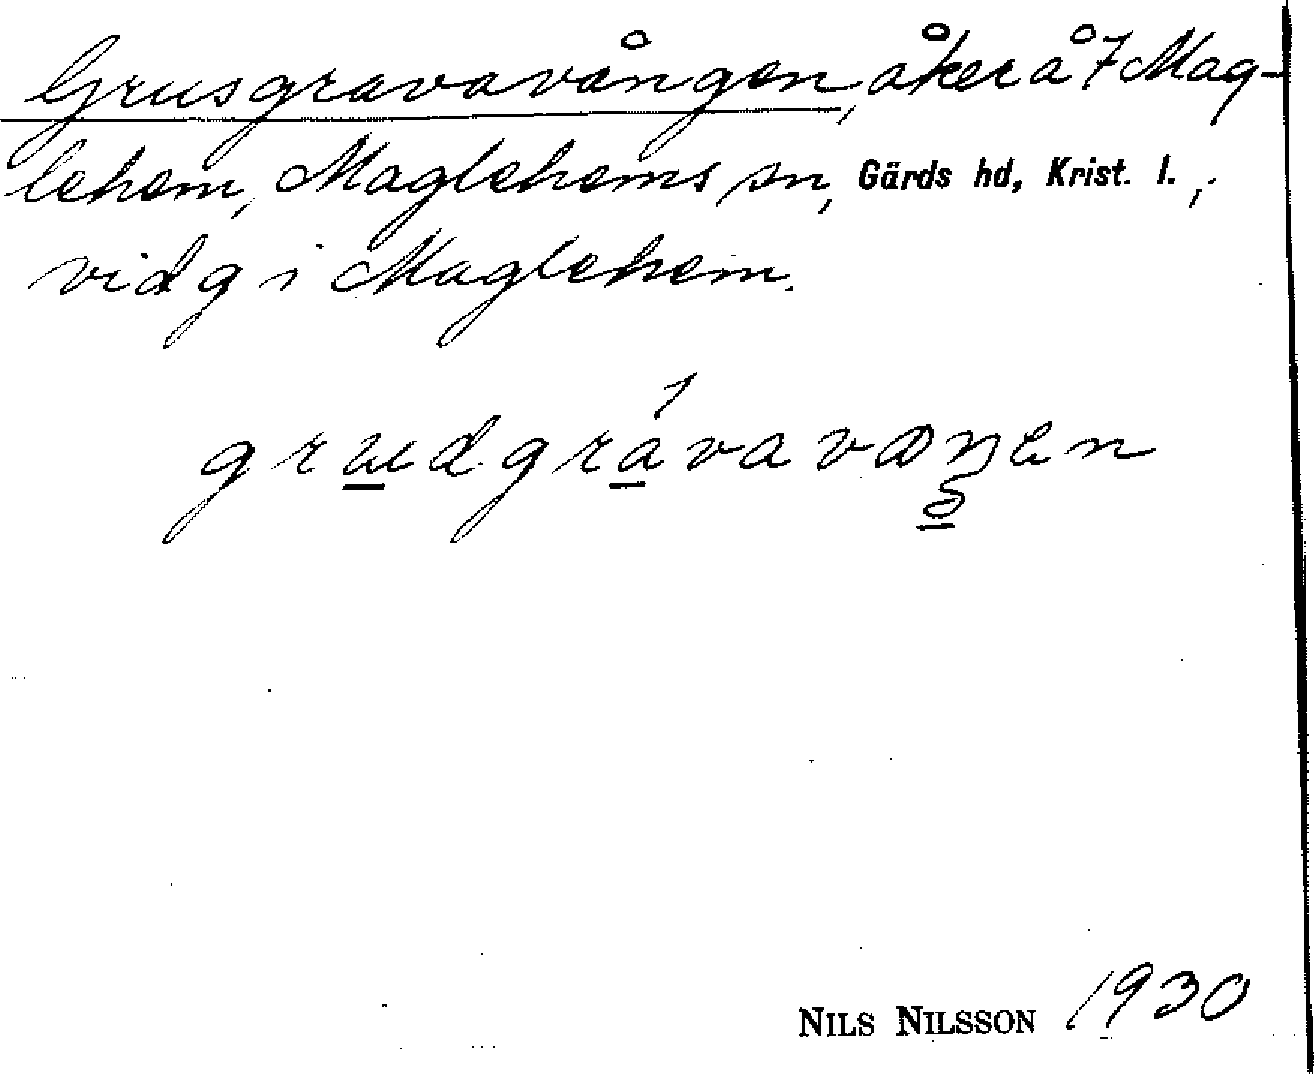 Grusgravavången, åker å 7 Mag-
lehem, Maglehems sn, Gärds hd, Krist. l.,
vid g i Maglehem.
NILS NILSSON 1930